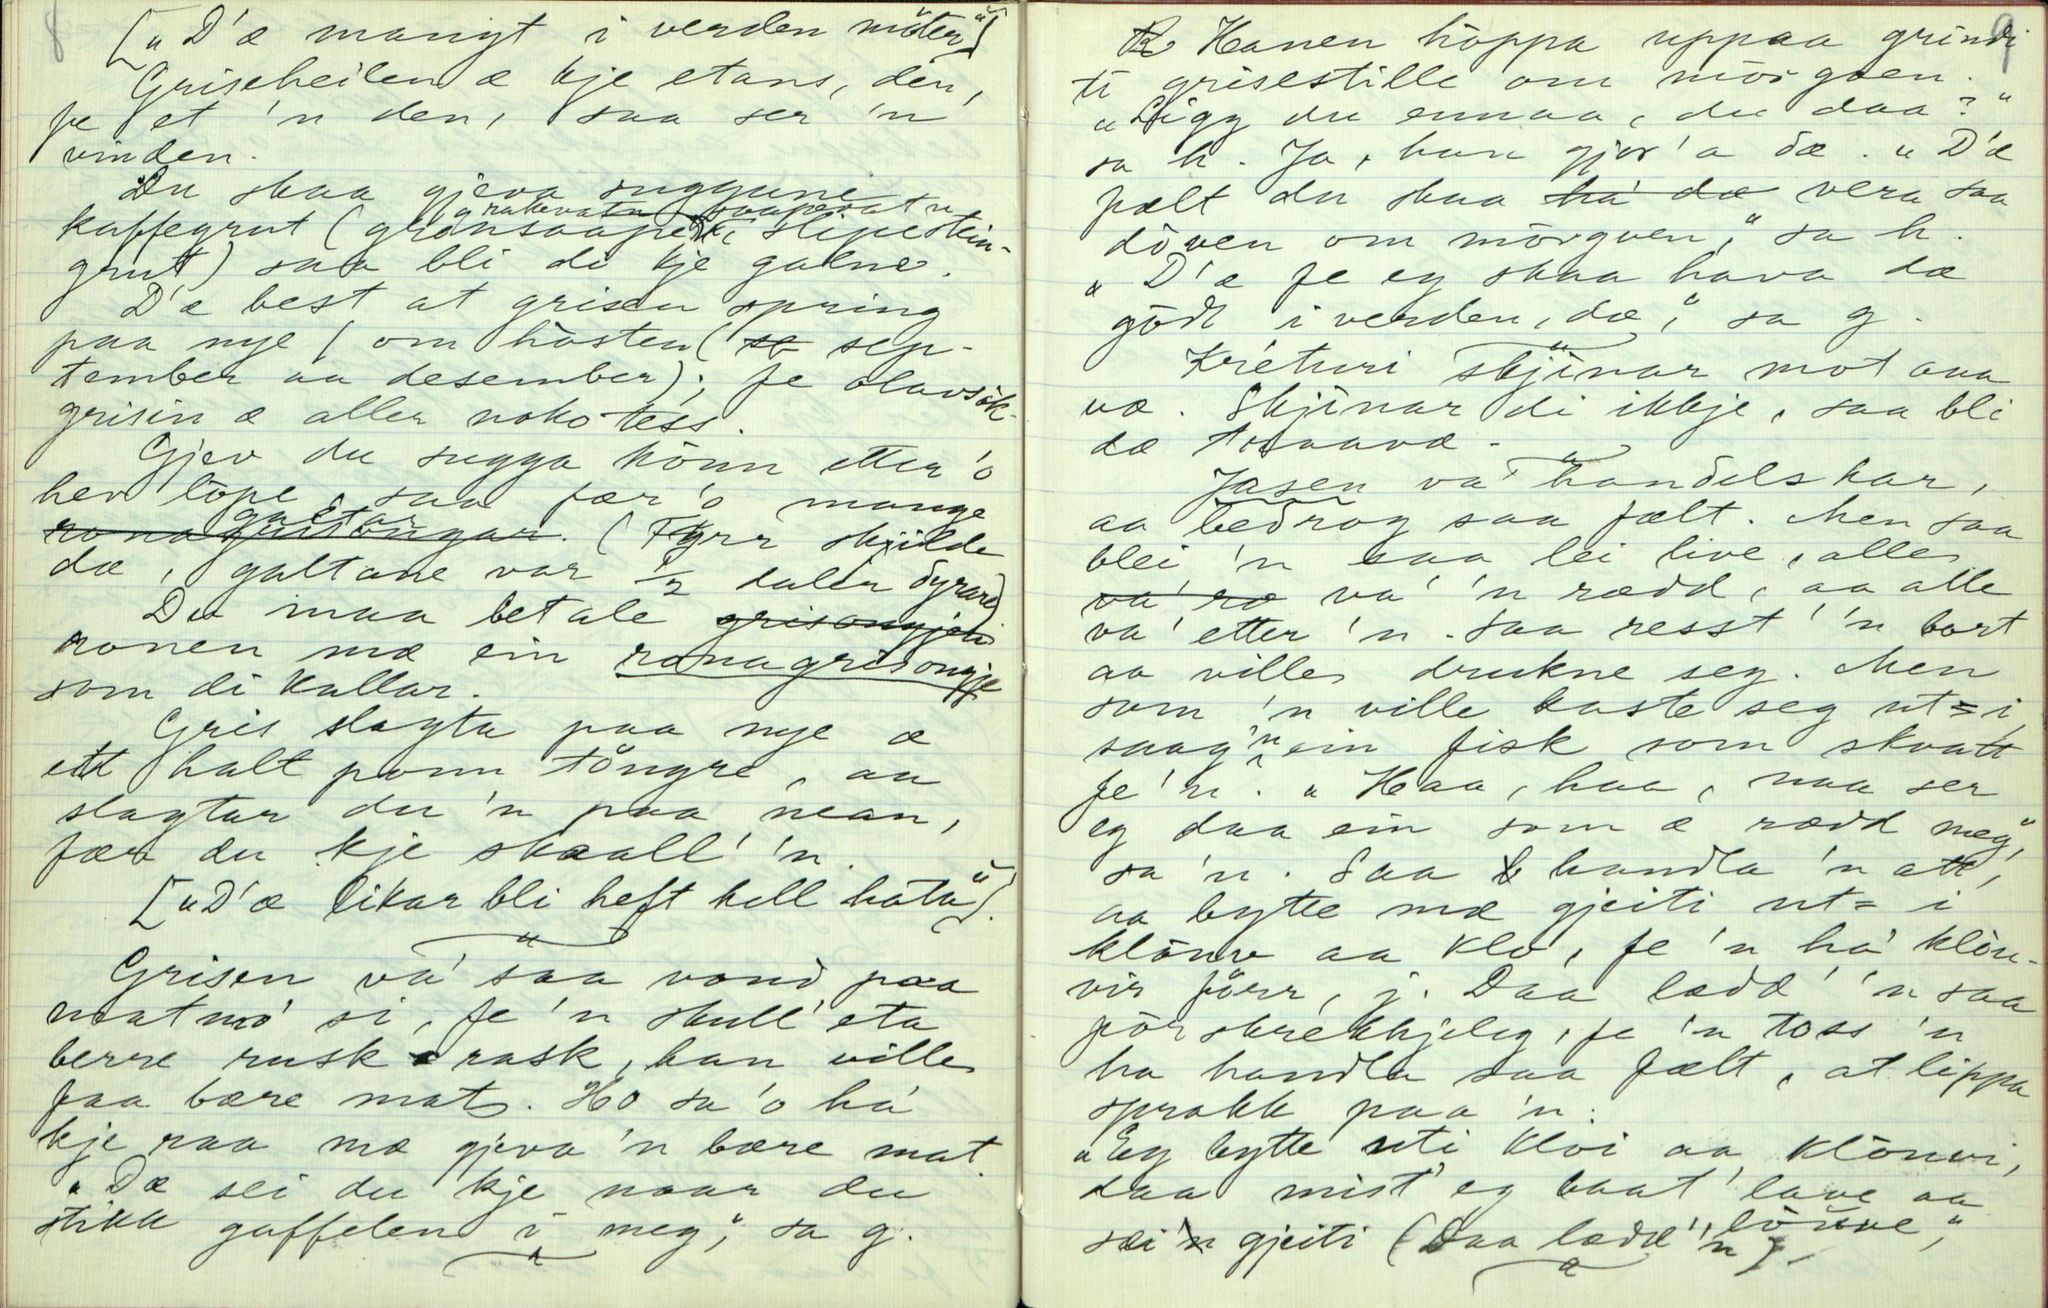 8
["D'æ mangt i verden möter"]
Griseheilen æ kje etans, den,
fe et 'n den, saa ser 'n
vinden.
Du skaa gjeva suggune
kaffegrut (grönsaape, slipestein-
grut) saa bli di kje galne.
D'æ best at grisen spring
paa nye / om hösten (se sep-
tember aa desember); fe olavsök-
grisin æ aller noko tess.
Gjev du sugga hönn etter 'o
hev löpe, saa fær 'o mange
galtar
ronagrisöngar. (Fyrr skjilde
dæ, galtane var ½ daler dyrare)
Du maa betale grisongjen
ronen mæ ein ronagrisongje
som di kallar.
Gris slagta paa nye æ
ett halt ponn töngre, aa
slagtar du 'n paa nean,
fær du kje skaall' 'n.
["D'æ likar bli heft hell hata"].
Grisen va' saa vond paa
matmo' si, fe 'n skull' eta
berre rusk rask, han ville
faa bære mat. Ho sa 'o ha'
kje raa mæ gjeva 'n bære mat.
"Dæ sei du kje naar du
stikk gaffelen i meg", sa g.
9
Hanen höppa uppaa grindi
ti grisestille om mörgaen.
"Ligg du ennaa, du daa?"
sa h. Ja, han gjor' a dæ. "D'æ
fælt du skaa ha' dæ vera saa
döven om mörguen," sa h.
"D'æ fe eg skaa hava dæ
gödt i verden, dæ," sa g.
Kréturi skjínar mot aaa
væ. Skjínar di ikkje, saa bli
dæ traavæ.
Jasen va' handelskar,
aa bedrog saa fælt. Men saa
blei 'n saa lei live, alle
va' ræ va' 'n rædd, aa alle
va' etter 'n. Saa resst' 'n bort
aa ville drukne seg. Men
som 'n ville kaste seg ut=i,
saag 'n ein fisk som skvatt
fe 'n. "Haa, haa, naa ser
eg daa ein som æ rædd meg",
sa 'n. Saa handla 'n att,
aa bytte mæ gjeiti ut= i
klönv aa klo, fe 'n ha' klön-
vir förr, j. Daa lædd' 'n saa
för skrekkjeleg, fe 'n toss 'n
ha handla saa fælt, at lippa
sprakk paa 'n.
"Eg bytte uti kloi aa klönvi,
daa mist' eg baat' lave aa
löuve",
sæi gjeiti (Daa lædd' 'n).